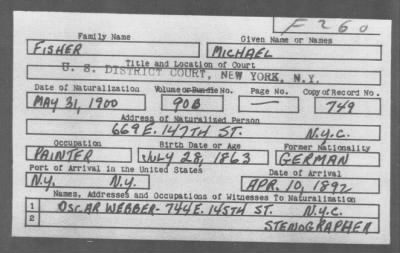 F260
Family Name Given Name or Names
FISHER MICHAEL
Title and Location of Court
U. S. DISTRICT COURT, NEW YORK, N.Y.
Date of Naturalization Volume or Bundle No. Page No. Copy of Record No.
MAY 31, 1900 90B — 749
Address of Naturalized Person
669 E. 147TH ST. N.Y.C.
Occupation Birth Date or Age Former Nationality
PAINTER JULY 28, 1863 GERMAN
Port of Arrival in the United States Date of Arrival
N.Y. N.Y. APR. 10, 1892
Names, Addresses and Occupations of Witnesses To Naturalization
1 OSCAR WEBBER - 744 E. 145TH ST. N.Y.C.
2 STENOGRAPHER